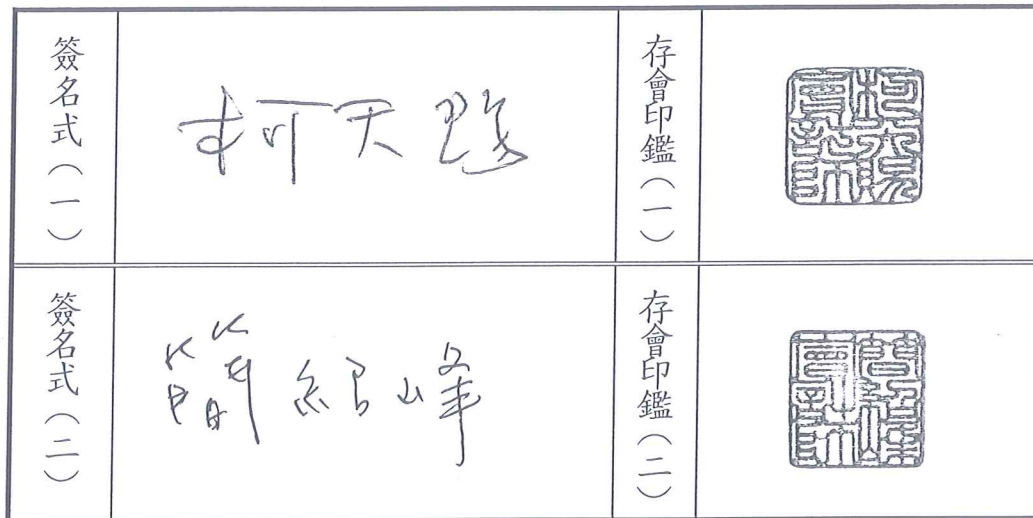 簽名式（一）
柯天賜
存會印鑑（一）
簽名式（二）
簡紹峰
存會印鑑（二）